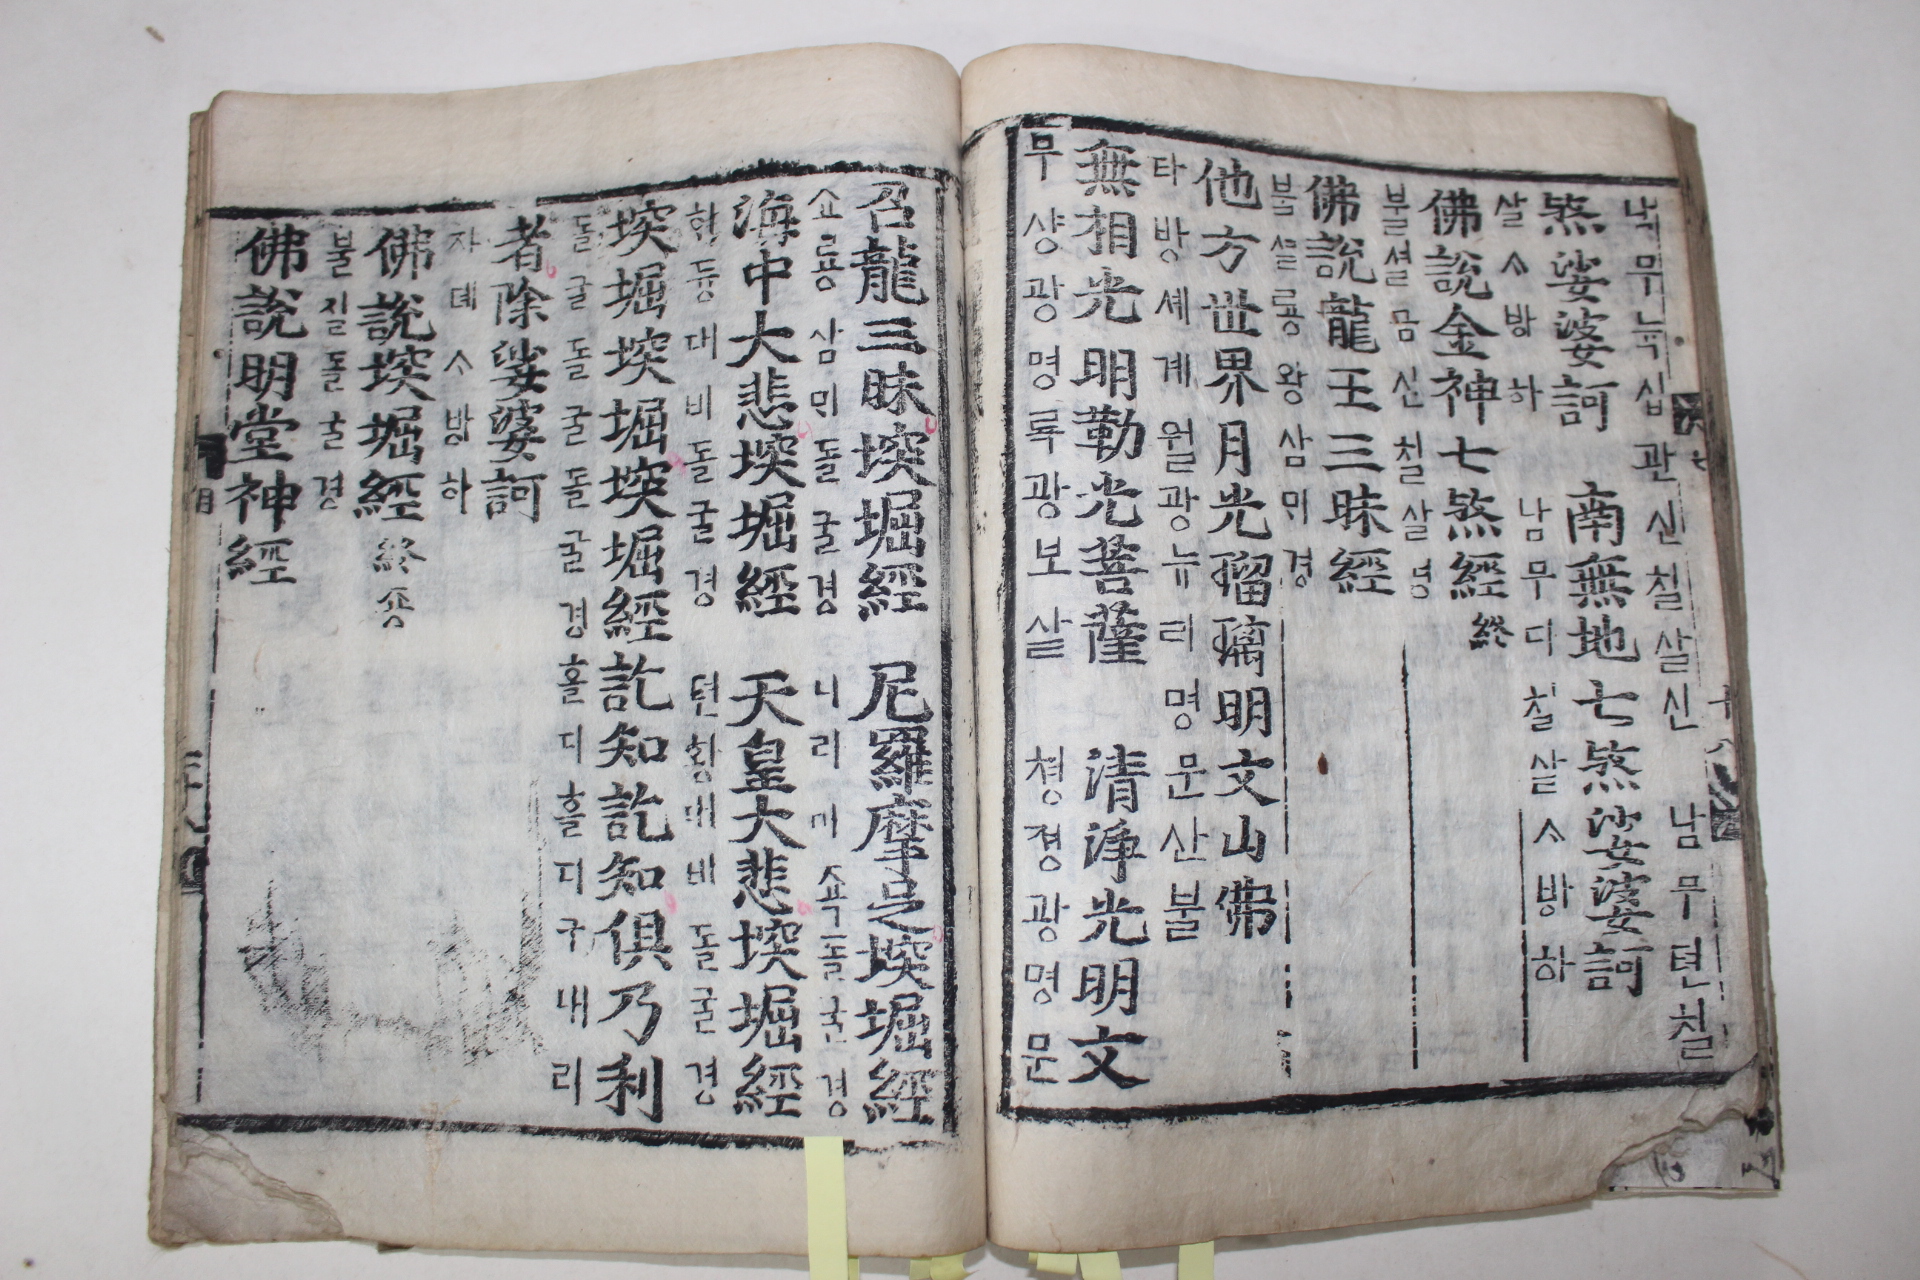 내무뉵십관신칠살신 남무텬칠
煞娑婆訶 南無地七煞娑婆訶
살ᄉᆞ바하 남무디칠살ᄉᆞ바하
佛說金神七煞經 終
불셜금신칠살경
佛說龍王三昧經
불셜룡왕삼미경
他方世界月光瑠璃明文山佛
타방셰계월광뉴리명문산불
無相光明勒光菩薩 清淨光明文
무샹광명륵광보살 쳥졍광명문
召龍三昧堗堀經 尼羅摩足堗堀經
쇼룡삼미돌굴경 니리마죡돌굴경
海中大悲堗堀經 天皇大悲堗堀經
ᄒᆡ듕대비돌굴경 텬황대비돌굴경
堗堀堗堀堗堀經訖知訖知俱乃利
돌굴돌굴돌굴경흘디흘디구내리
者除娑婆訶
쟈뎨ᄉᆞ바하
佛說堗堀經 終 죵
불셜돌굴경
佛說明堂神經